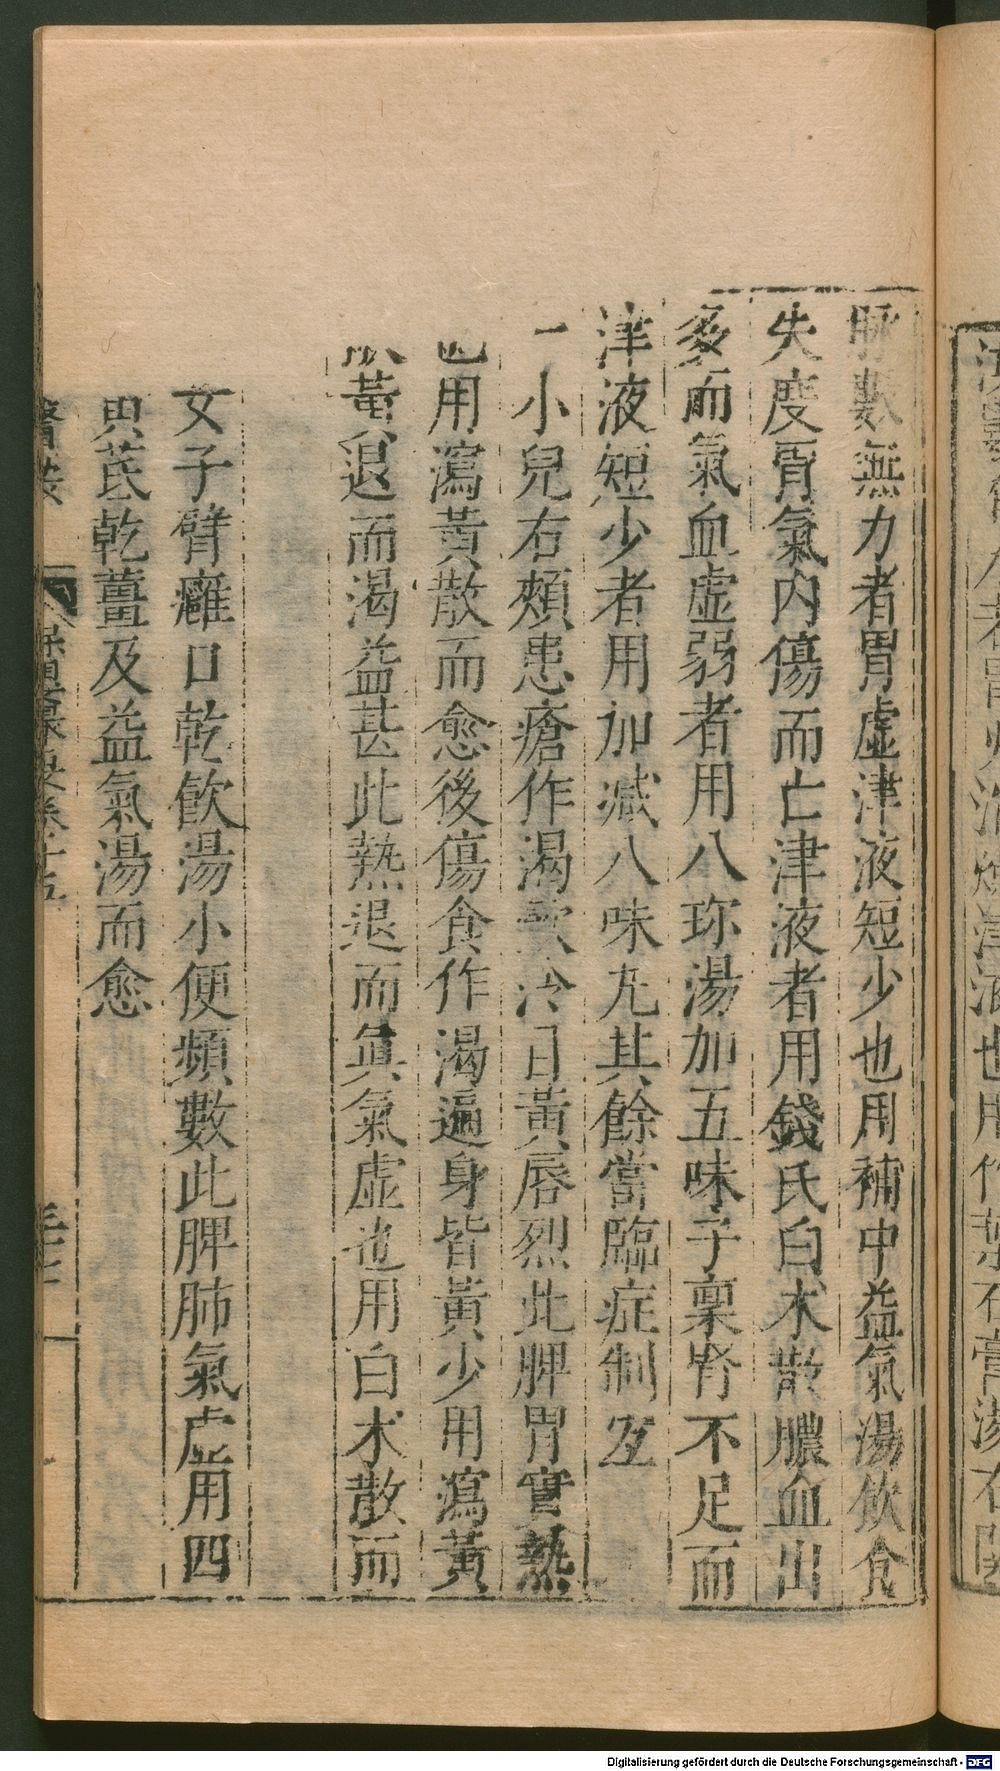 脉數無力者胃虛津液短少也用補中益氣湯飲食
失度胃氣内傷而亡津液者用錢氏白术散膿血出
多而氣血虛弱者用八珎湯加五味子稟腎不足而
津液短少者用加减八味丸其餘當臨症制宜
一小兒右頰患瘡作渴飲冷目黃唇烈此脾胃實熱
也用瀉黃散而愈後傷食作渴遍身皆黃少用瀉黃
散黃退而渴益甚此熱退而眞氣虛也用白术散而
女子臂癰口乾飲湯小便頻數此脾肺氣虛用四
異芪乾薑及益氣湯而愈
醫按
保嬰 卷十五
Digitalisierung gefördert durch die Deutsche Forschungsgemeinschaft - DFG